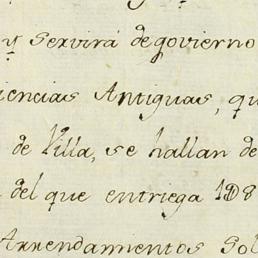 y servirá de govierno
iencias Antiguas, qu
de Villa, se hallan de
del que entriega
Arrendamientos Sol